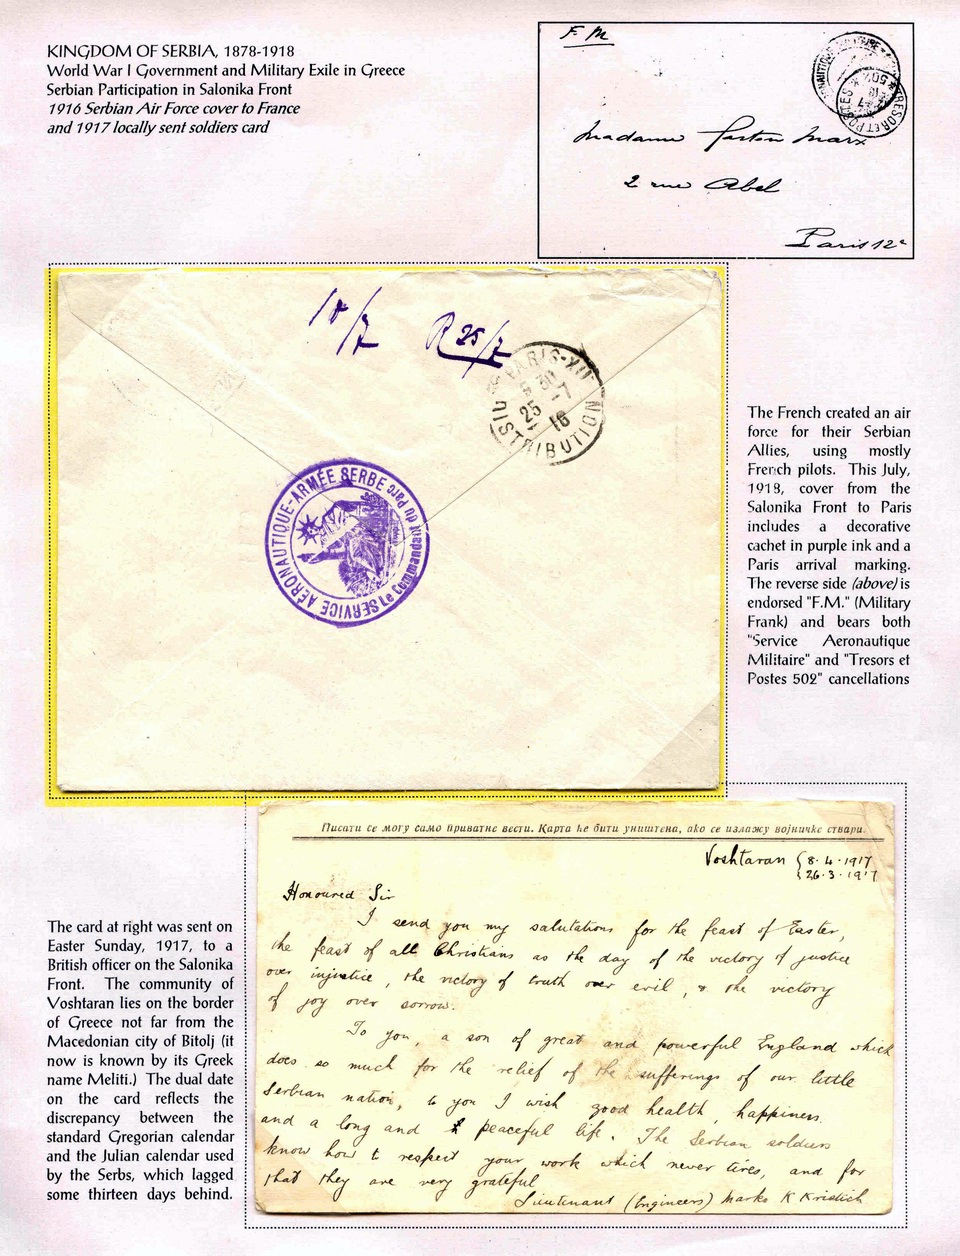 KINGDOM OF SERBIA, 1878-1918
World War I Government and Military Exile in Greece
Serbian Participation in Salonika Front
1916 Serbian Air Force cover to France
and 1917 locally sent soldiers card
F. M.
TRESOR ET POSTES
* 502 *
Madame Gaston Marx
2 rue Abel
Paris 12e
18/7 R 25/7
PARIS-XII
5 30
25 -7
18
DISTRIBUTION
SERVICE AÉRONAUTIQUE-ARMÉE SERBE
Le Commandant du Parc
The French created an air
force for their Serbian
Allies, using mostly
French pilots. This July,
1918, cover from the
Salonika Front to Paris
includes a decorative
cachet in purple ink and a
Paris arrival marking.
The reverse side (above) is
endorsed "F.M." (Military
Frank) and bears both
"Service Aeronautique
Militaire" and "Tresors et
Postes 502" cancellations
Писати се могу само приватне вести. Карта ће бити уништена, ако се излажу војничке ствари.
Voshtaran { 8·4·1917
26·3·1917
Honoured Sir
I send you my salutations for the feast of Easter,
the feast of all Christians as the day of the victory of justice
over injustice, the victory of truth over evil, & the victory
of joy over sorrow.
To you, a son of great and powerful England which
does so much for the relief of the sufferings of our little
Serbian nation, to you I wish good health, happiness
and a long and peaceful life. The Serbian soldiers
know how to respect your work which never tires, and for
that they are very grateful
Lieutenant (Engineers) Marko K Kristich
The card at right was sent on
Easter Sunday, 1917, to a
British officer on the Salonika
Front. The community of
Voshtaran lies on the border
of Greece not far from the
Macedonian city of Bitolj (it
now is known by its Greek
name Meliti.) The dual date
on the card reflects the
discrepancy between the
standard Gregorian calendar
and the Julian calendar used
by the Serbs, which lagged
some thirteen days behind.